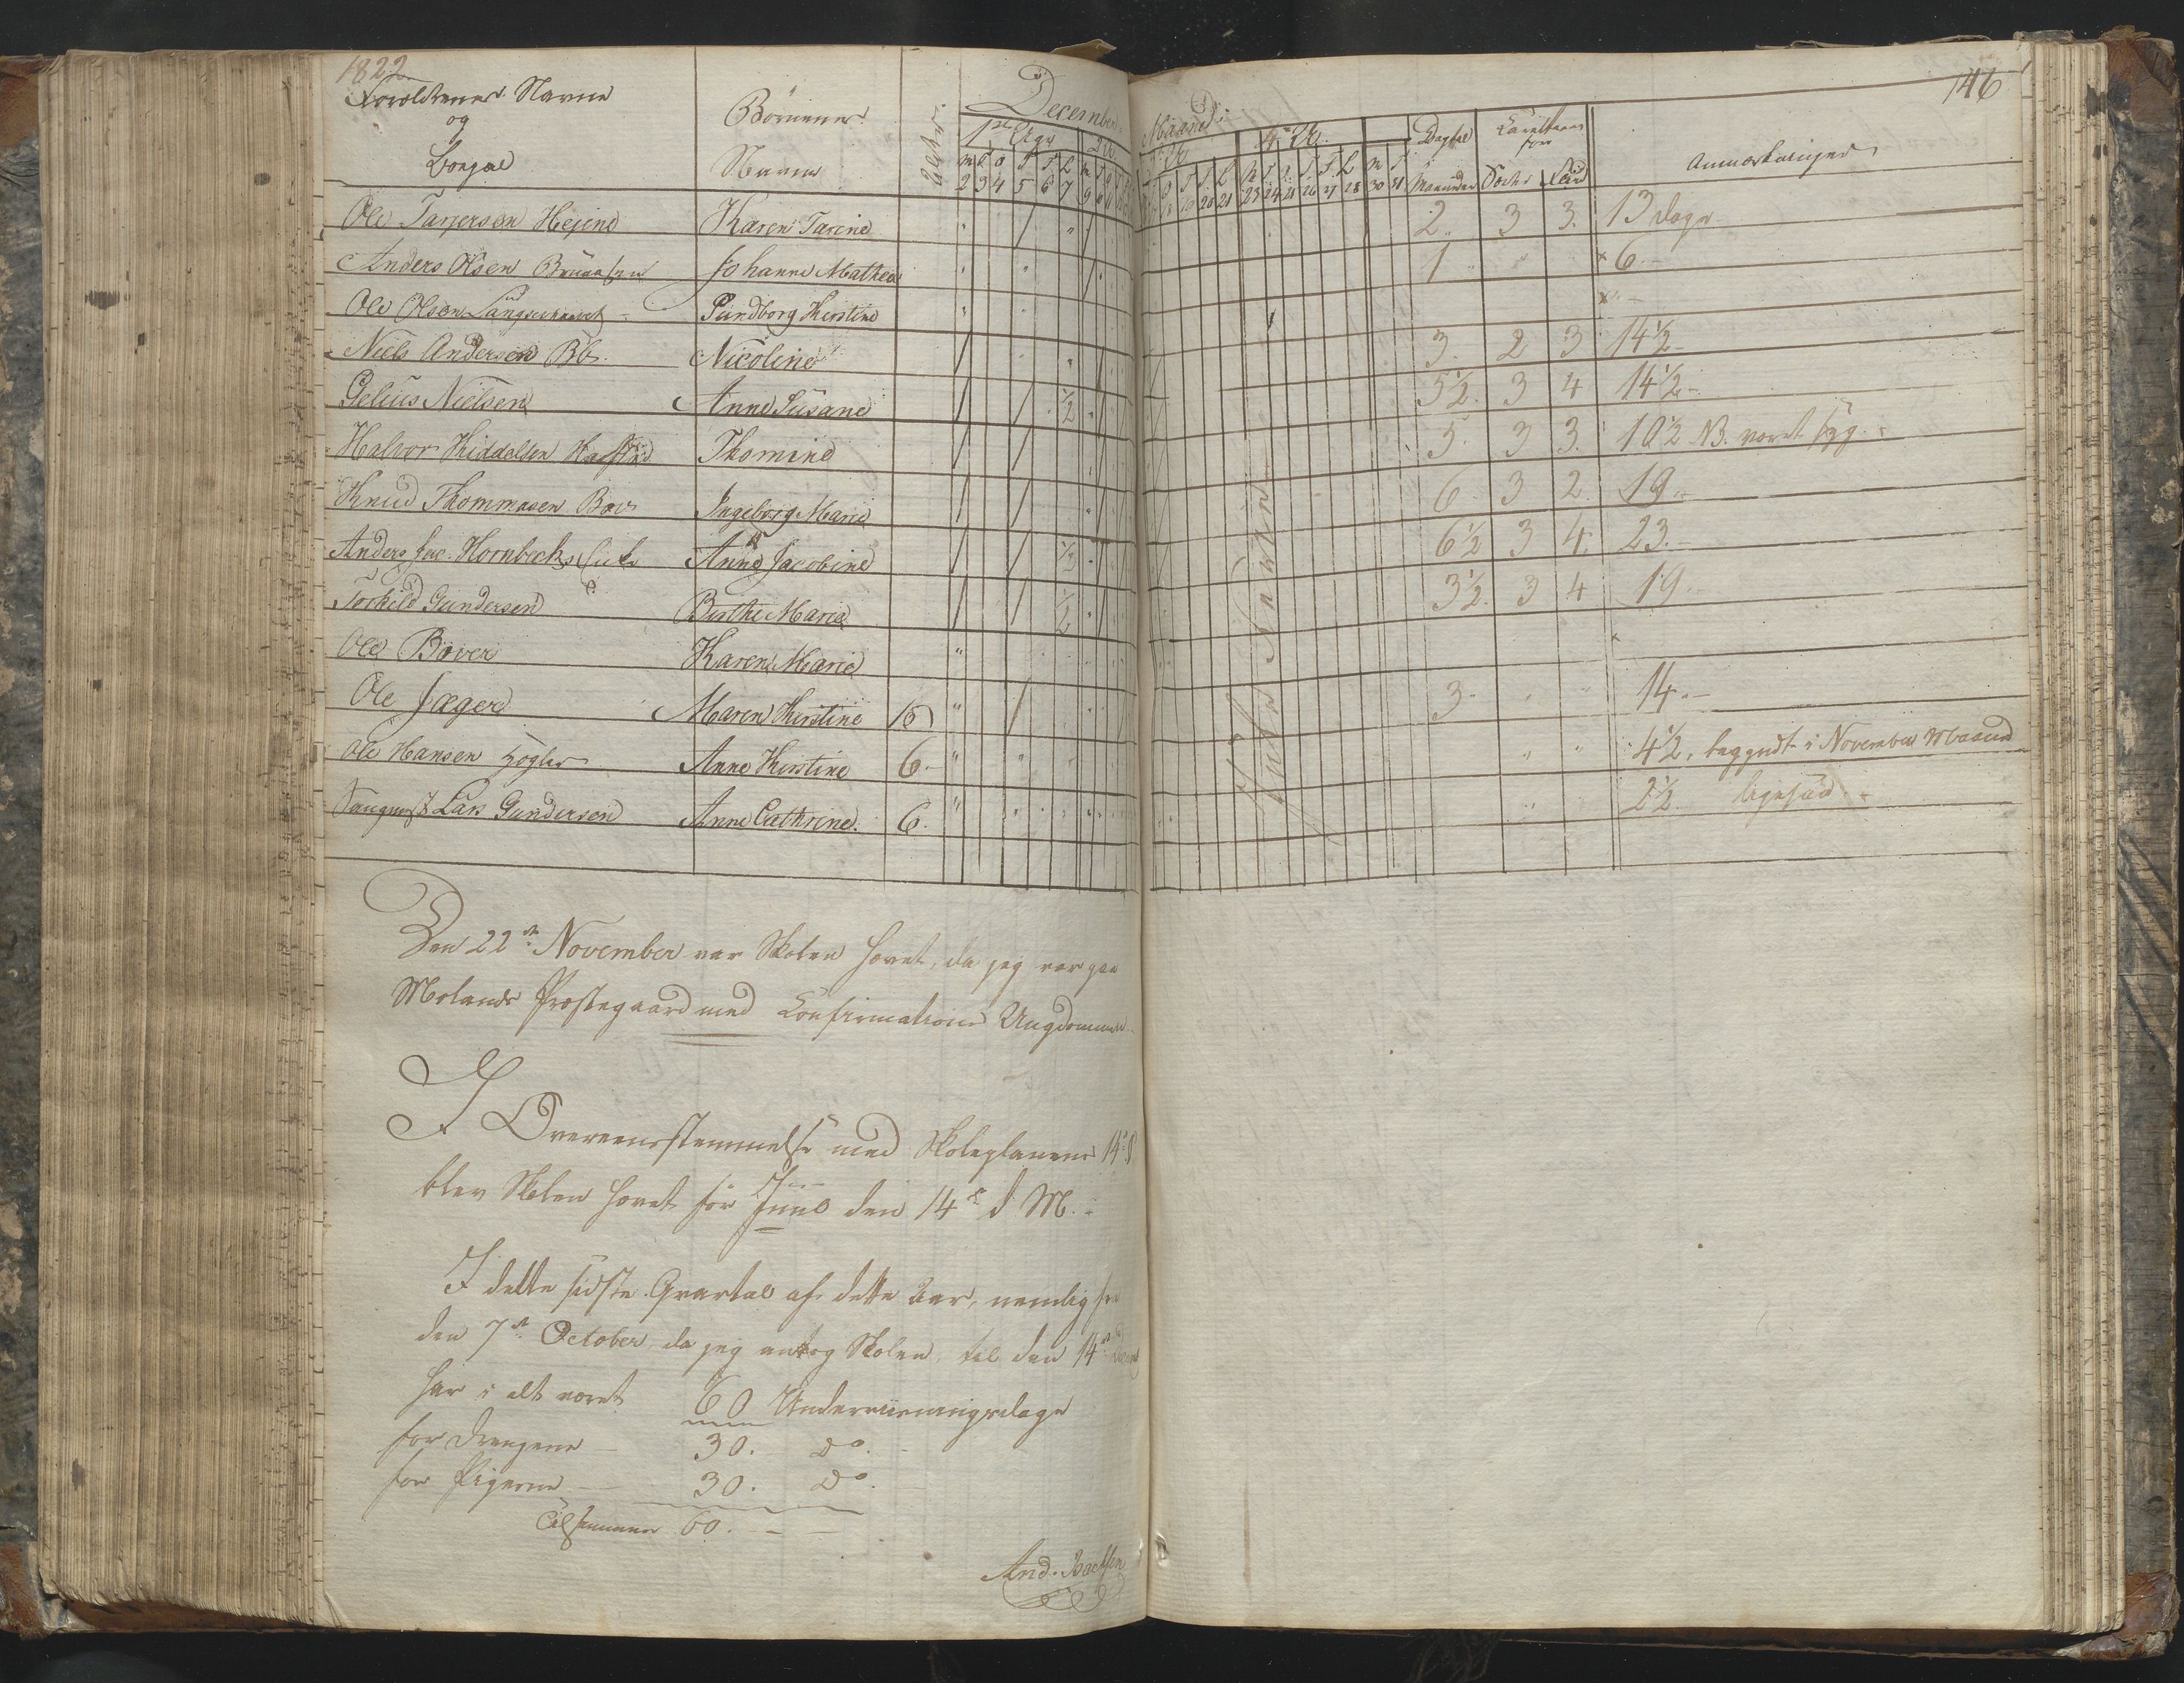 1822
146
Forældrenes Navne
og
Bopæl
Børnenes
Navne
Alder.
December
Maaned:
1ste Uge
4de U.
M T O T F L
2 3 4 5 6 7 9
20 21 23 24 25 26 27 28 30 31
Dagtal
i
Maaneden
Caracteer
for
Sæder Flid
Anmærkninger
Ole Tarjersen Hejene Karen Tarine 2 3 3. 13 dage
Anders Olsen Johanne Mathea 1 " " × 6.
Ole Olsen Gundborg Kirstine × " -
Niels Andersen Bb. Nicoline 3. 2 3 14½
Gelius Nielsen Anne Susane ½ 5½. 3 4 14½
Halvor Kiddelsen Thomine 5. 3 3. 10½ NB. været syg.
Knud Thommasen Ingeborg Marie 6 3 2. 19.
Anders Jac. Hornbecks Anne Jacobine ½ 6½ 3 4. 23.
Torkild Gundersen Birthe Marie ½ 3½. 3 4 19
Ole Bøver Karen Marie ×
Ole Jæger Maren Kirstine 10 3. " " 14.
Ole Hansen Anne Kirstine 6. " " 4½, begyndt i November Maaned
Lars Gundersen Anne Cathrine. 6. " " 2½. ligesaa
Jule Ferien
Den 22de November var Skolen hævet, da jeg var paa
Molands Præstegaard med Confirmations Ungdommen
I Overeensstemmelse med Skoleplanens 14de §
blev Skolen hævet før Juul den 14de d M.
I dette sidste Qvartal af dette Aar, nemlig fra
den 7de October, da jeg antog Skolen, til den 14de
har i alt været 60 Underviisningsdage
for Drengene 30. Do.
for Pigerne 30. Do.
Tilsammen 60.
And. Isachsen